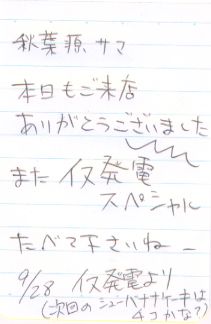 秋葉原、サマ
本日もご来店
ありがとうございました
また 仅発電
スペシャル
たべて下さいねー
9/28 仅発電より
(次回のシューバナナケーキは
チョコかな?)